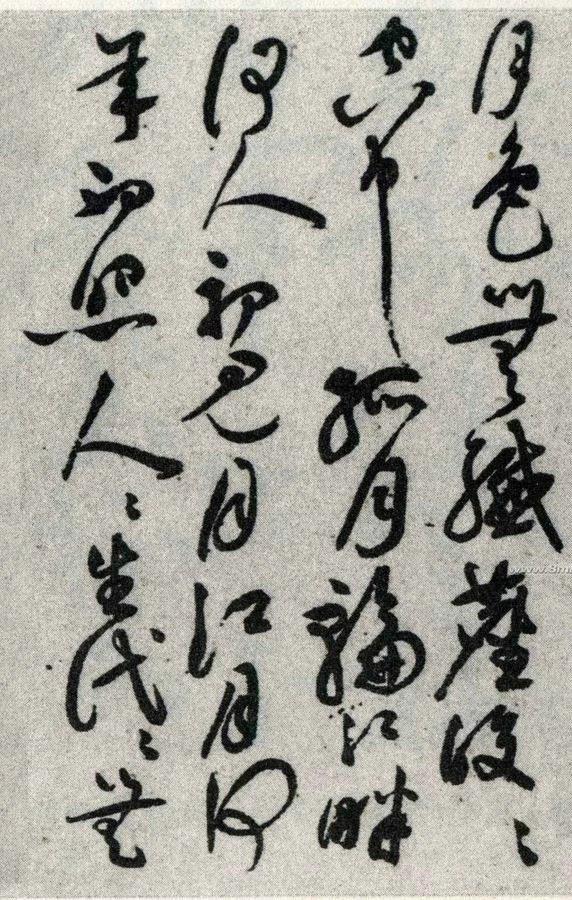 月色無纖塵皎〻
空中孤月輪江畔
何人初見月江月何
年初照人〻生代〻無